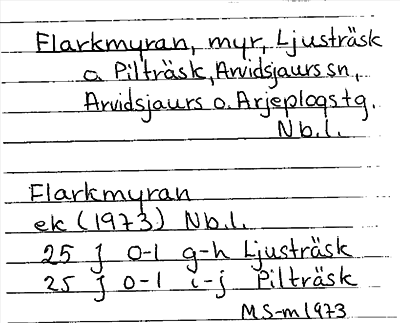 Flarkmyran, myr, Ljusträsk
o Pilträsk, Arvidsjaurs sn.,
Arvidsjaurs o. Arjeplogs tg.
Nb.l.
Flarkmyran
ek (1973) Nb.l.
25 j 0-1 g-h Ljusträsk
25 j 0-1 i-j Pilträsk
MS-m 1973